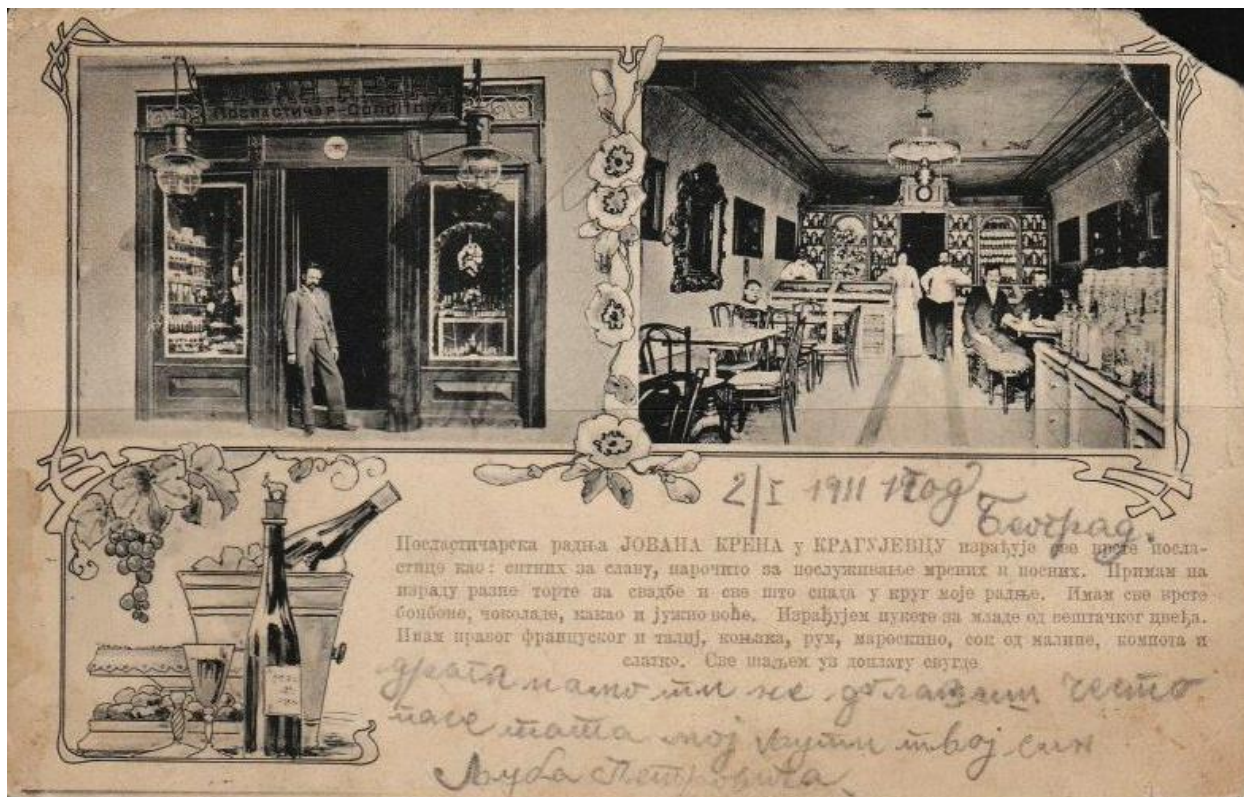 ЈОВАН КРЕН
Посластичар-Conditor
2/I 1911 год
Београд.
Посластичарска радња ЈОВАНА КРЕНА у КРАГУЈЕВЦУ израђује све врсте посла-
стице као: ситних за славу, нарочито за послуживање мрсних и посних. Примам на
израду разне торте за свадбе и све што спада у круг моје радње. Имам све врсте
бонбоне, чоколаде, какао и јужно воће. Израђујем пукете за младе од вештачког цвећа.
Имам правог француског и талиј, коњака, рум, мароскино, сок од малине, компота и
слатко. Све шаљем уз доплату свугде
драга мамо ти не долазиш често
пасе тата мој љути твој син
Љуба Петровића